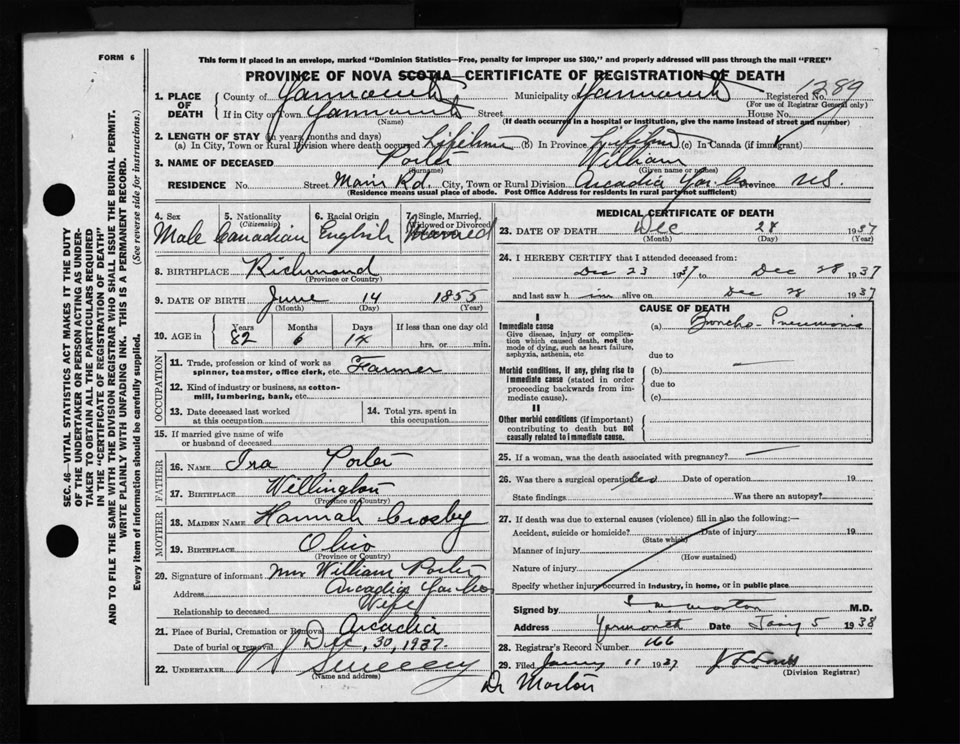 FORM 6
This form if placed in an envelope, marked "Dominion Statistics—Free, penalty for improper use $300," and properly addressed will pass through the mail "FREE"
PROVINCE OF NOVA SCOTIA—CERTIFICATE OF REGISTRATION OF DEATH
1. PLACE OF DEATH
County of Yarmouth Municipality of Yarmouth Registered No. 289
(For use of Registrar General only)
If in City or Town Yarmouth Street House No.
(Name) (If death occurred in a hospital or institution, give the name instead of street and number)
2. LENGTH OF STAY (in years, months and days)
(a) In City, Town or Rural Division where death occurred Lifetime (b) In Province Lifetime (c) In Canada (if immigrant)
3. NAME OF DECEASED Porter William
(Surname) (Given name or names)
RESIDENCE No. Street Main Rd. City, Town or Rural Division Arcadia Yar. Co Province N.S.
(Residence means usual place of abode. Post Office Address for residents in rural parts not sufficient)
4. Sex 5. Nationality 6. Racial Origin 7. Single, Married,
(Citizenship) Widowed or Divorced
Male Canadian English Married
8. BIRTHPLACE Richmond
(Province or Country)
9. DATE OF BIRTH June 14 1855
(Month) (Day) (Year)
10. AGE in Years Months Days If less than one day old
82 6 14 hrs. or min.
OCCUPATION
11. Trade, profession or kind of work as
spinner, teamster, office clerk, etc. Farmer
12. Kind of industry or business, as cotton-
mill, lumbering, bank, etc.
13. Date deceased last worked 14. Total yrs. spent in
at this occupation this occupation
15. If married give name of wife
or husband of deceased
FATHER
16. NAME Ira Porter
17. BIRTHPLACE Wellington
(Province or Country)
MOTHER
18. MAIDEN NAME Hannah Crosby
19. BIRTHPLACE Ohio
(Province or Country)
20. Signature of informant Mrs William Porter
Address Arcadia Yar Co
Relationship to deceased Wife
21. Place of Burial, Cremation or Removal Arcadia
Date of burial or removal Dec, 30, 1937.
22. UNDERTAKER Sweeney
(Name and address)
MEDICAL CERTIFICATE OF DEATH
23. DATE OF DEATH Dec 28 1937
(Month) (Day) (Year)
24. I HEREBY CERTIFY that I attended deceased from:
Dec 23 1937 to Dec 28 1937
and last saw him alive on Dec 28 1937
CAUSE OF DEATH
I
Immediate cause (a) Broncho-Pneumonia
Give disease, injury or complica-
tion which caused death, not the
mode of dying, such as heart failure,
asphyxia, asthenia, etc due to
Morbid conditions, if any, giving rise to (b)
immediate cause (stated in order due to
proceeding backwards from im-
mediate cause). (c)
II
Other morbid conditions (if important)
contributing to death but not
causally related to immediate cause.
25. If a woman, was the death associated with pregnancy?
26. Was there a surgical operation? Date of operation 19
State findings Was there an autopsy?
27. If death was due to external causes (violence) fill in also the following:—
Accident, suicide or homicide? Date of injury 19
(State which)
Manner of injury
(How sustained)
Nature of injury
Specify whether injury occurred in industry, in home, or in public place
Signed by Morton M.D.
Address Yarmouth Date Jany 5 1938
28. Registrar's Record Number 166
29. Filed Jany 11 1937
(Division Registrar)
Dr Morton
SEC. 46—VITAL STATISTICS ACT MAKES IT THE DUTY
OF THE UNDERTAKER OR PERSON ACTING AS UNDER-
TAKER TO OBTAIN ALL THE PARTICULARS REQUIRED
IN THE "CERTIFICATE OF REGISTRATION OF DEATH"
AND TO FILE THE SAME WITH THE DIVISION REGISTRAR WHO SHALL ISSUE THE BURIAL PERMIT.
WRITE PLAINLY WITH UNFADING INK. THIS IS A PERMANENT RECORD.
Every item of information should be carefully supplied. (See reverse side for instructions.)